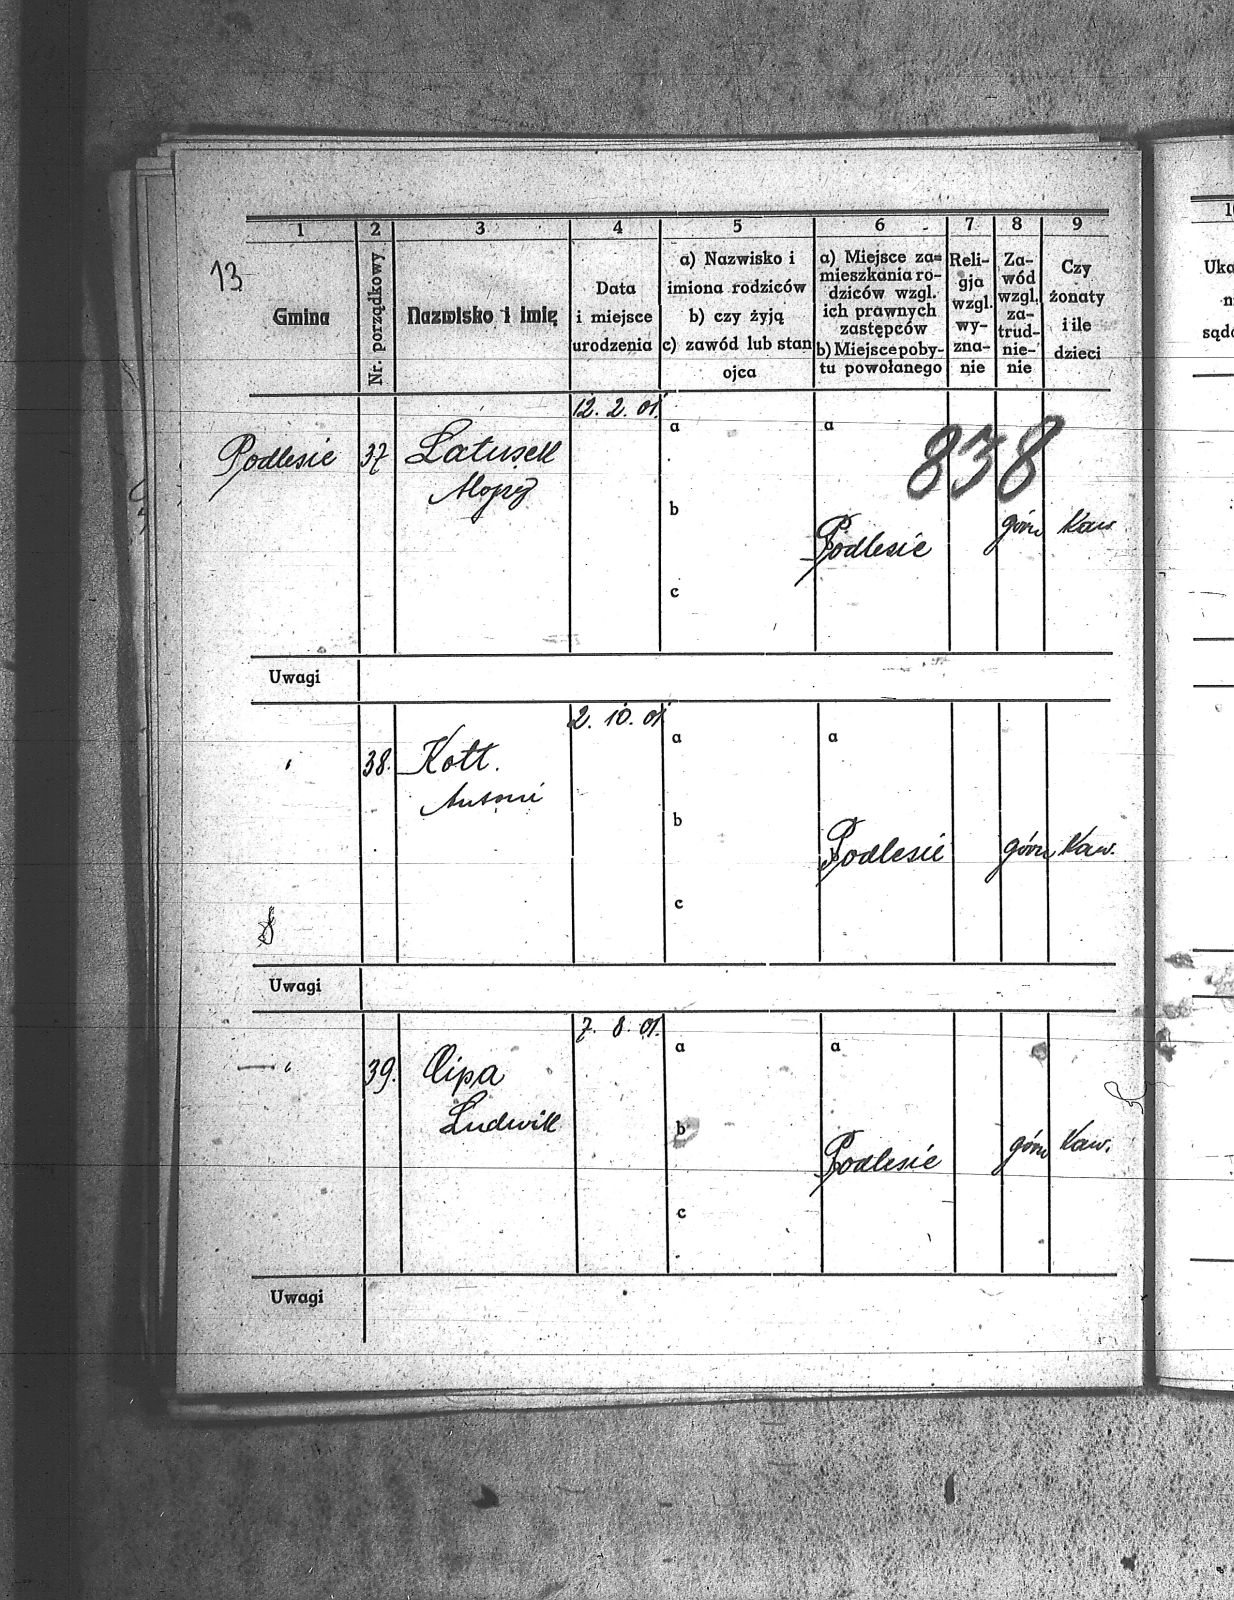 13
1 2 3 4 5 6 7 8 9
Gmina
Nr. porządkowy
Nazwisko i imię
Data
i miejsce
urodzenia
a) Nazwisko i
imiona rodziców
b) czy żyją
c) zawód lub stan
ojca
a) Miejsce za=
mieszkania ro-
dziców wzgl.
ich prawnych
zastępców
b) Miejsce poby-
tu powołanego
Reli-
gja
wzgl.
wy-
zna-
nie
Za-
wód
wzgl.
za-
trud-
nie-
nie
Czy
żonaty
i ile
dzieci
838
12. 2. 01.
a a
Podlesie 37 Latusek
Alojzy
b
Podlesie górn Kaw
c
Uwagi
2. 10. 01
a a
38. Kott.
Antoni
b
Podlesie górn Kaw.
c
Uwagi
7. 8. 01.
a a
— " 39. Cipa
Ludwik
b
Podlesie górn Kaw.
c
Uwagi
10
Uka
n
sąd